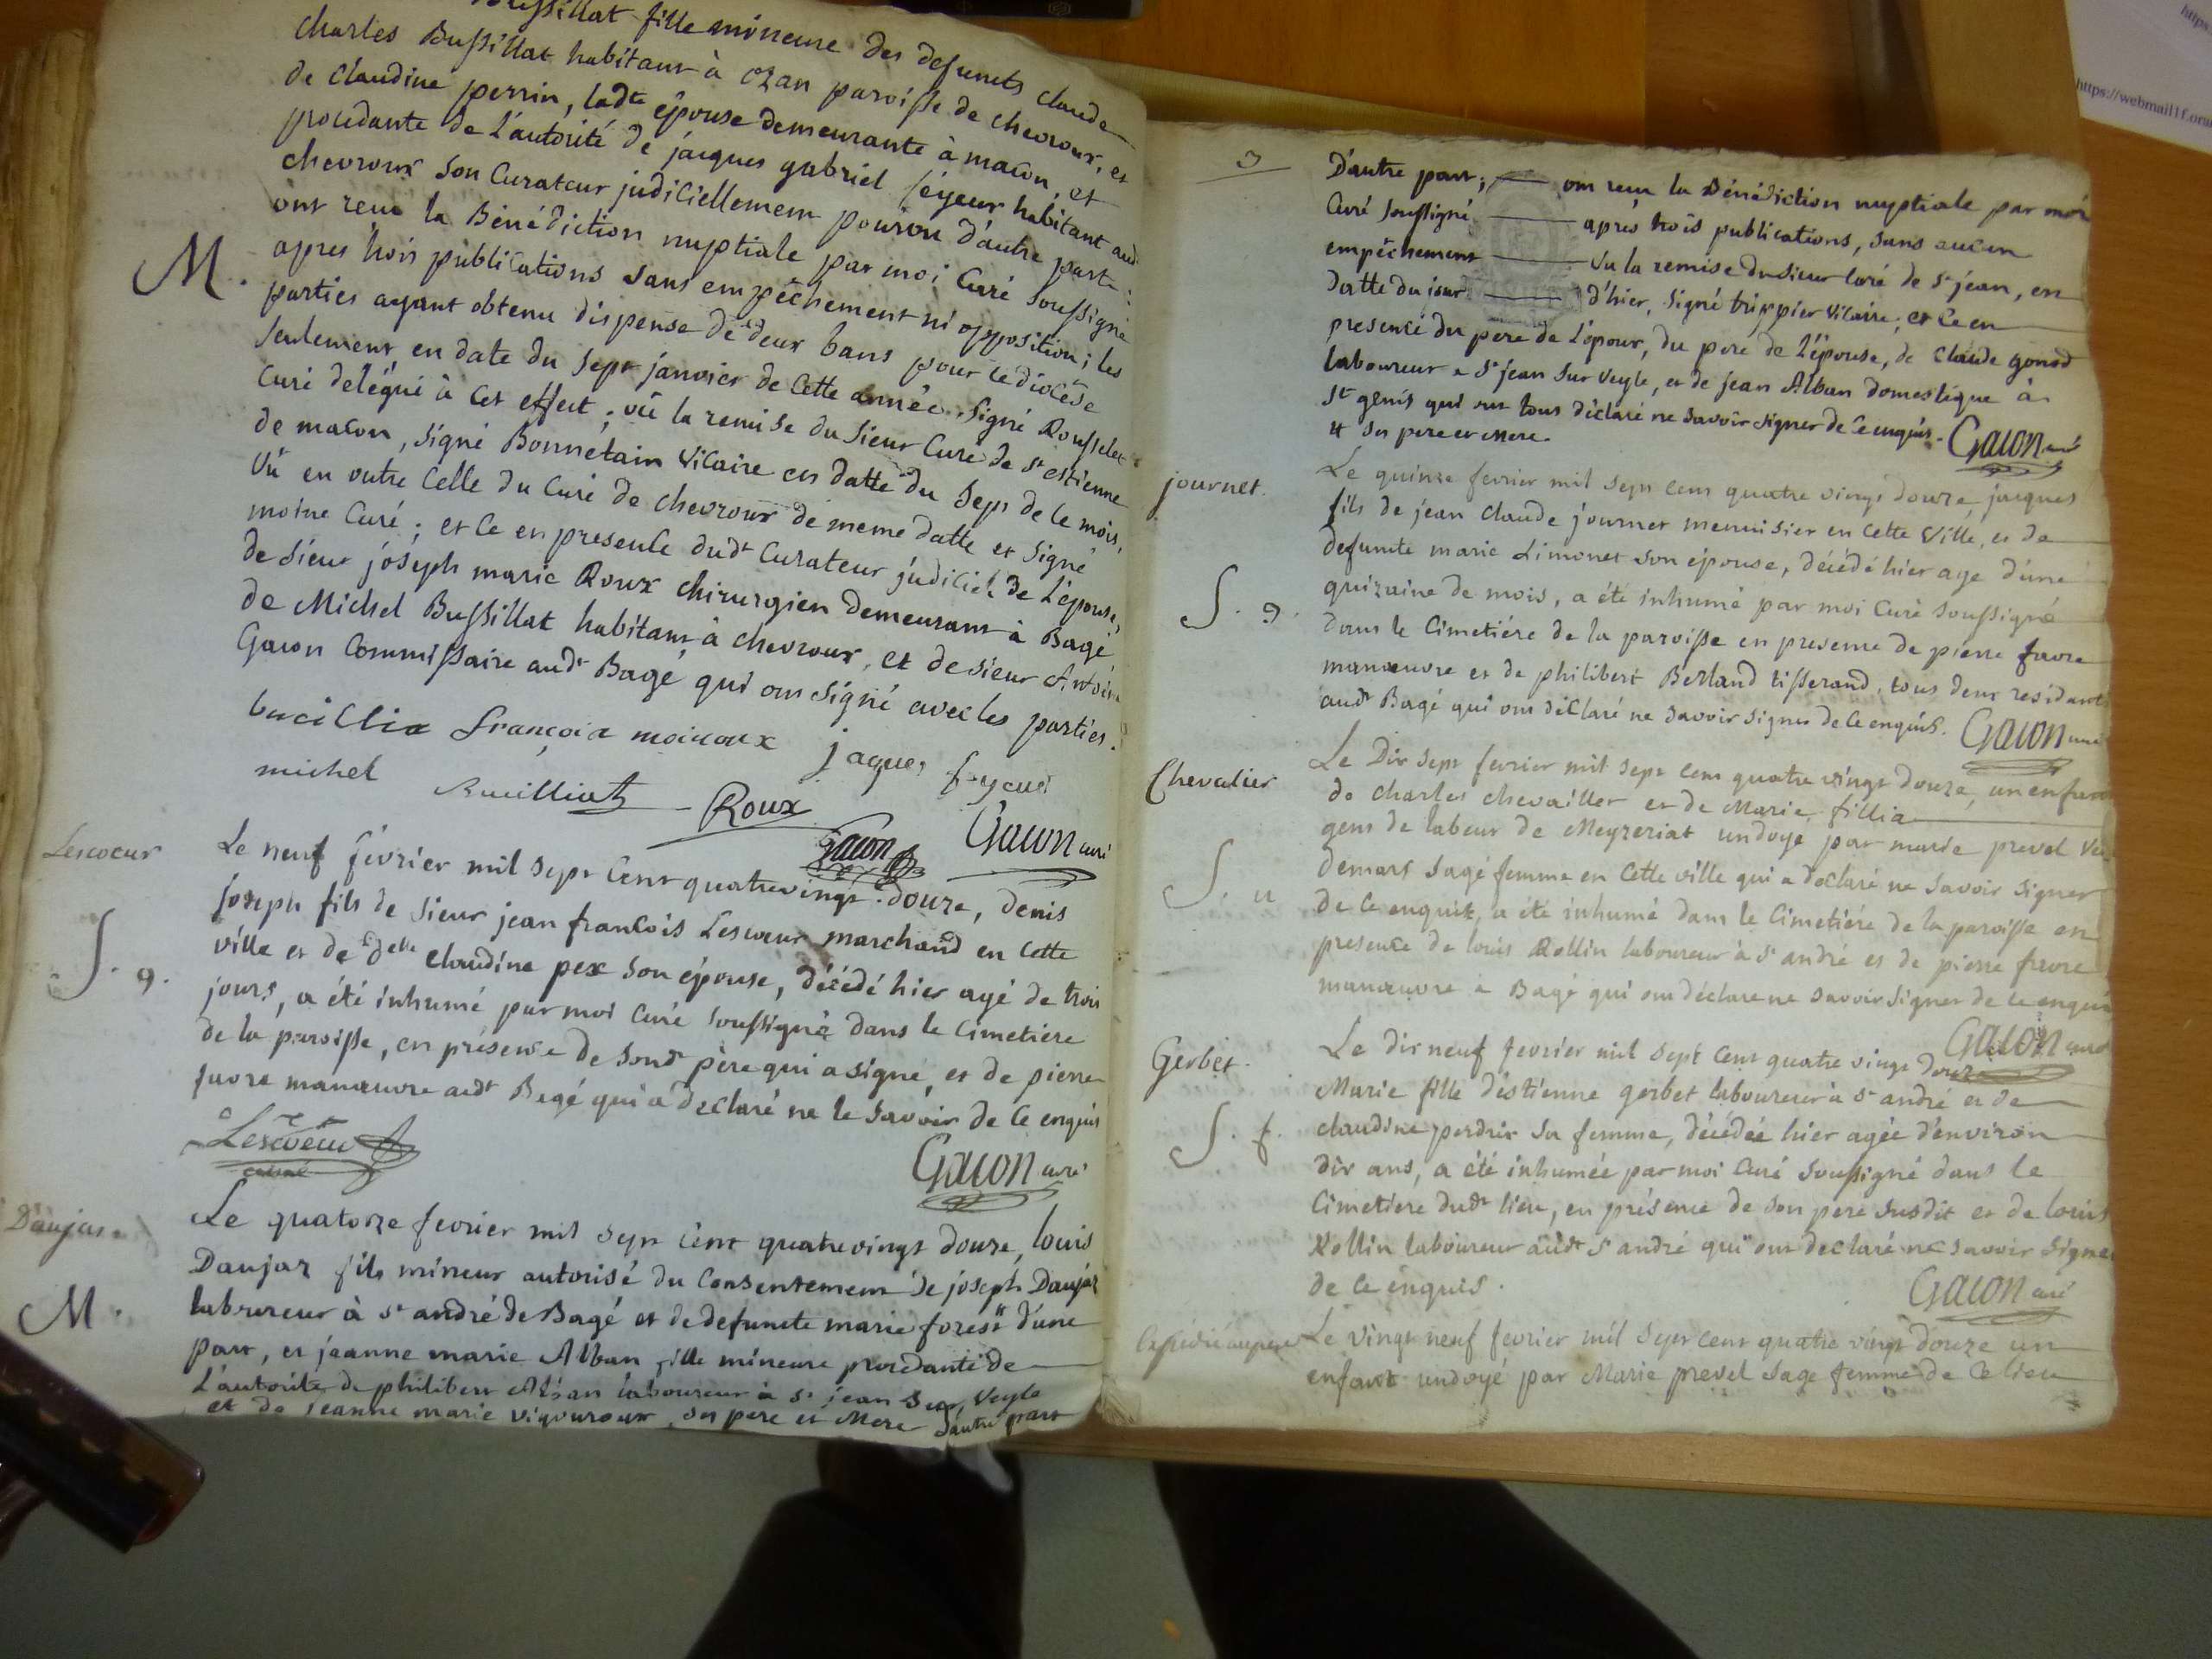 Bussillat fille mineure des defunts claude
charles Bussillat habitant à ozan paroisse de chevroux, et
de claudine perrin, ladte épouse demeurante à macon, et
procedante de L'autorité de jacques gabriel feyeux habitant aud
chevroux son Curateur judiciellement pourvu d'autre part:
ont recu la Bénédiction nuptiale par moi Curé soussigné
M. apres trois publications sans empêchement ni opposition; les
parties ayant obtenu dispense de deux bans pour le diocèse
seulement, en date du sept janvier de cette année, signé Rousselet
Curé délégué à cet effect; vû la remise du sieur Curé de st estienne
de macon, signé Bonnetain vicaire en datte du sept de ce mois,
vû en outre celle du Curé de chevroux de meme datte et signé
moine Curé; et ce en presence dudt Curateur judiciel de L'épouse,
de sieur joseph marie Roux chirurgien demeurant à Bagé
de Michel Bussillat habitant à chevroux, et de sieur Antoine
Gacon Commissaire audt Bagé qui ont signé avec les parties.
bucillia françoia moiroux jaques feyeux
michel Bucilliat Roux
Gacon Gacon curé
Lescoeur
Le neuf fevrier mil sept cent quatrevingt douze, denis
joseph fils de sieur jean francois Lescoeur marchand en cette
ville et de delle claudine pex son épouse, décédé hier agé de trois
S. g. jours, a été inhumé par moi Curé soussigné dans le cimetiere
de la paroisse, en présence de sondt père qui a signé, et de pierre
favre manœuvre audt Bagé qui a declaré ne le savoir de ce enquis
Lescoeur
Gacon curé
Daujat
Le quatorze fevrier mil sept cent quatrevingt douze, louis
Daujat fils mineur autorisé du consentement de joseph Daujat
M. laboureur à st andré de Bagé et de defuncte marie forest d'une
part, et jeanne marie Alban fille mineure procédante de
L'autorité de philibert Alban laboureur à st jean sur Veyle
et de jeanne marie vigoureux, ses pere et mere d'autre part
3
D'autre part; ont recu la Bénédiction nuptiale par moi
Curé soussigné après trois publications, sans aucun
empêchement vu la remise du sieur Curé de st jean, en
datte du jour d'hier, signé trippier vicaire; et ce en
presence du pere de L'époux, du pere de L'épouse, de claude gonod
laboureur à st jean sur veyle, et de jean Alban domestique à
st genis qui ont tous déclaré ne savoir signer de ce enquis.
# ses pere et mere. Gacon curé
journet.
Le quinze fevrier mil sept cent quatre vingt douze, jacques
fils de jean claude journet menuisier en cette ville, et de
defuncte marie Limonet son épouse, décédé hier agé d'une
S. g. quizaine de mois, a été inhumé par moi Curé soussigné
dans le Cimetiére de la paroisse en presence de pierre favre
manœuvre et de philibert Berland tisserand, tous deux residants
audt Bagé qui ont déclaré ne savoir signer de ce enquis. Gacon curé
Chevalier
Le dix sept fevrier mil sept cent quatre vingt douze, un enfant
de charles chevailler et de Marie fillia
gens de labeur de Meyzeriat undoyé par marie prevel
S. u demars sage femme en cette ville qui a declaré ne savoir signer
de ce enquise, a été inhumé dans le Cimetiére de la paroisse en
presence de louis Rollin laboureur à st andré et de pierre favre
manœuvre à Bagé qui ont déclaré ne savoir signer de ce enquis
Gacon curé
Gerbet.
Le dix neuf fevrier mil sept cent quatre vingt douze
Marie fille d'estienne gerbet laboureur à st andré et de
S. f. claudine perdrix sa femme, décédée hier agée d'environ
dix ans, a été inhumée par moi Curé soussigné dans le
Cimetiere dudt lieu, en présence de son pere susdit et de louis
Rollin laboureur audt st andré qui ont declaré ne savoir signer
de ce enquis.
Gacon curé
Le vingt neuf fevrier mil sept cent quatre vingt douze un
enfant undoyé par Marie prevel sage femme de ce lieu
https://webmail1f.oran